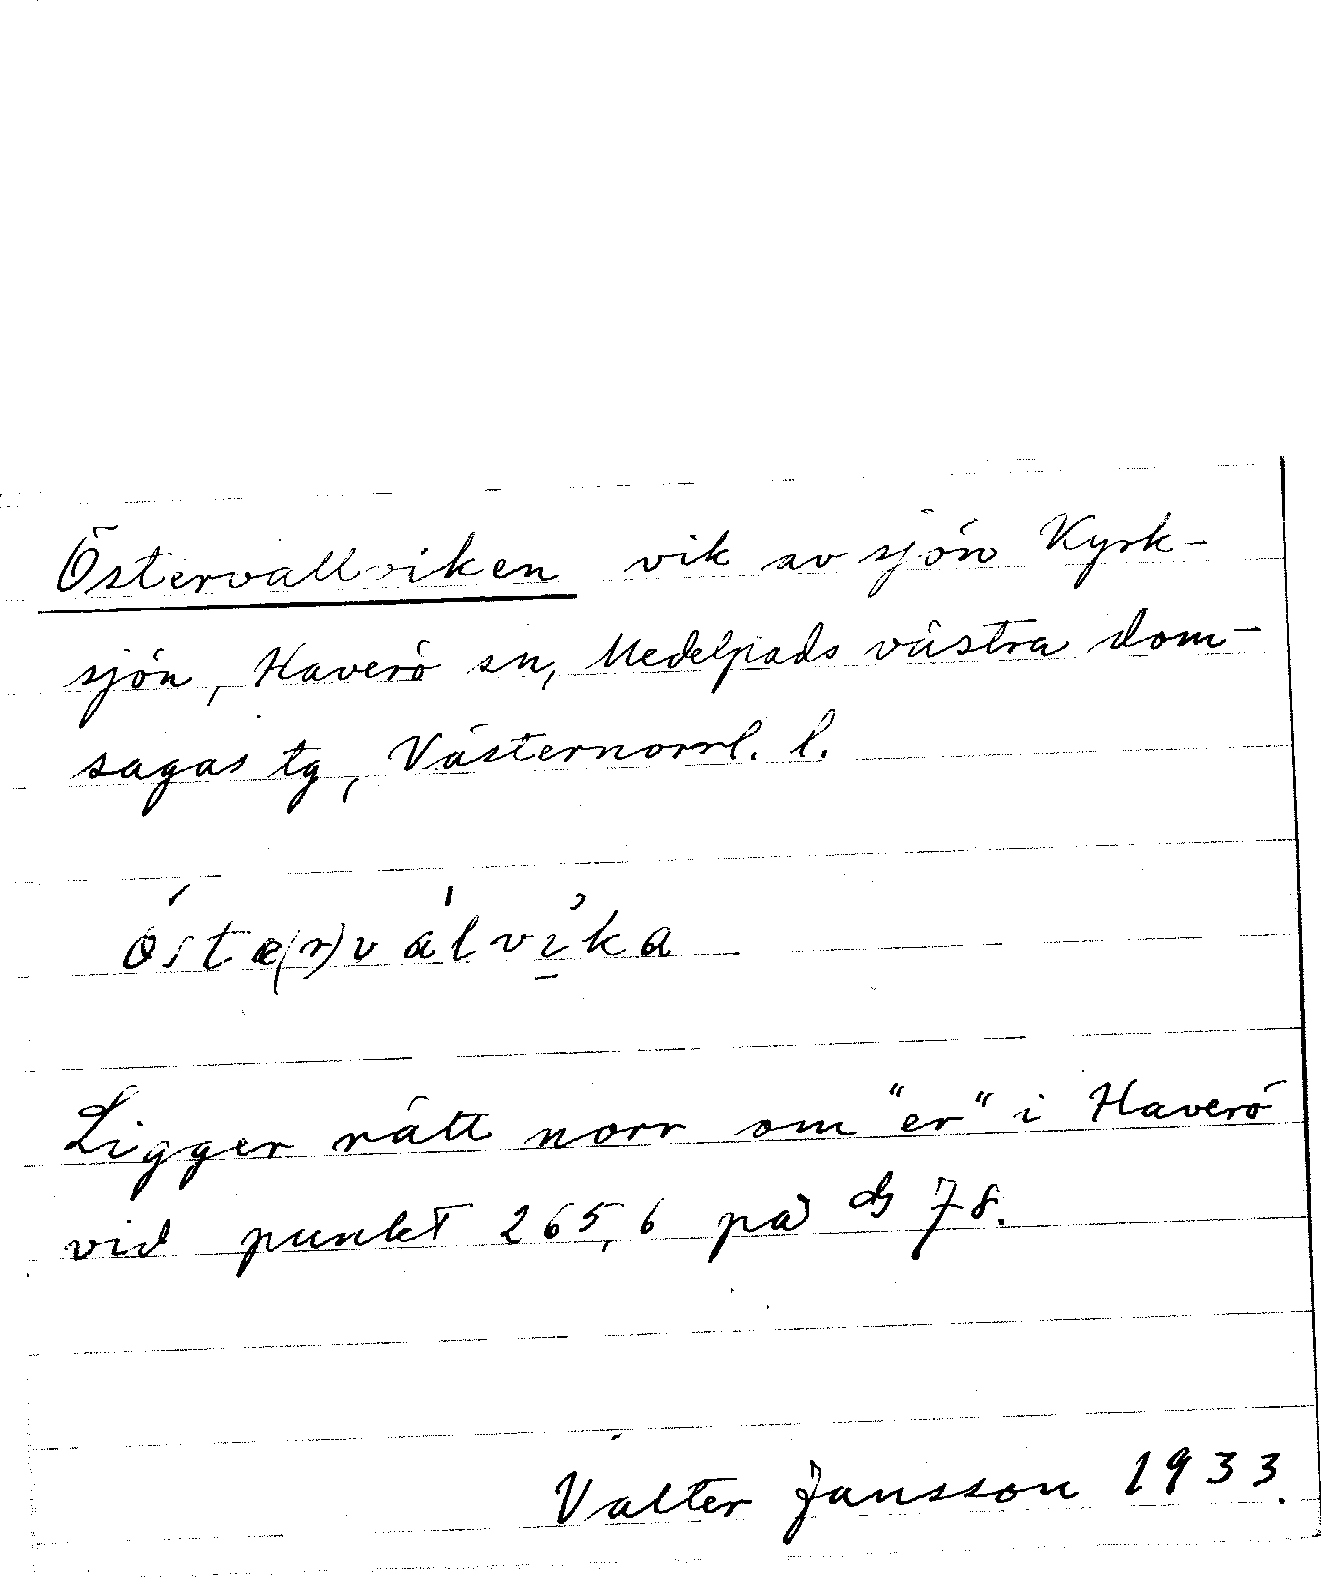 Östervallviken vik av sjön Kyrk-
sjön, Haverö sn, Medelpads västra dom-
sagas tg, Västernorrl. l.
östa(r)válvika
Ligger rätt norr om "er" i Haverö
vid punkt 265,6 på 78.
Valter Jansson 1933.